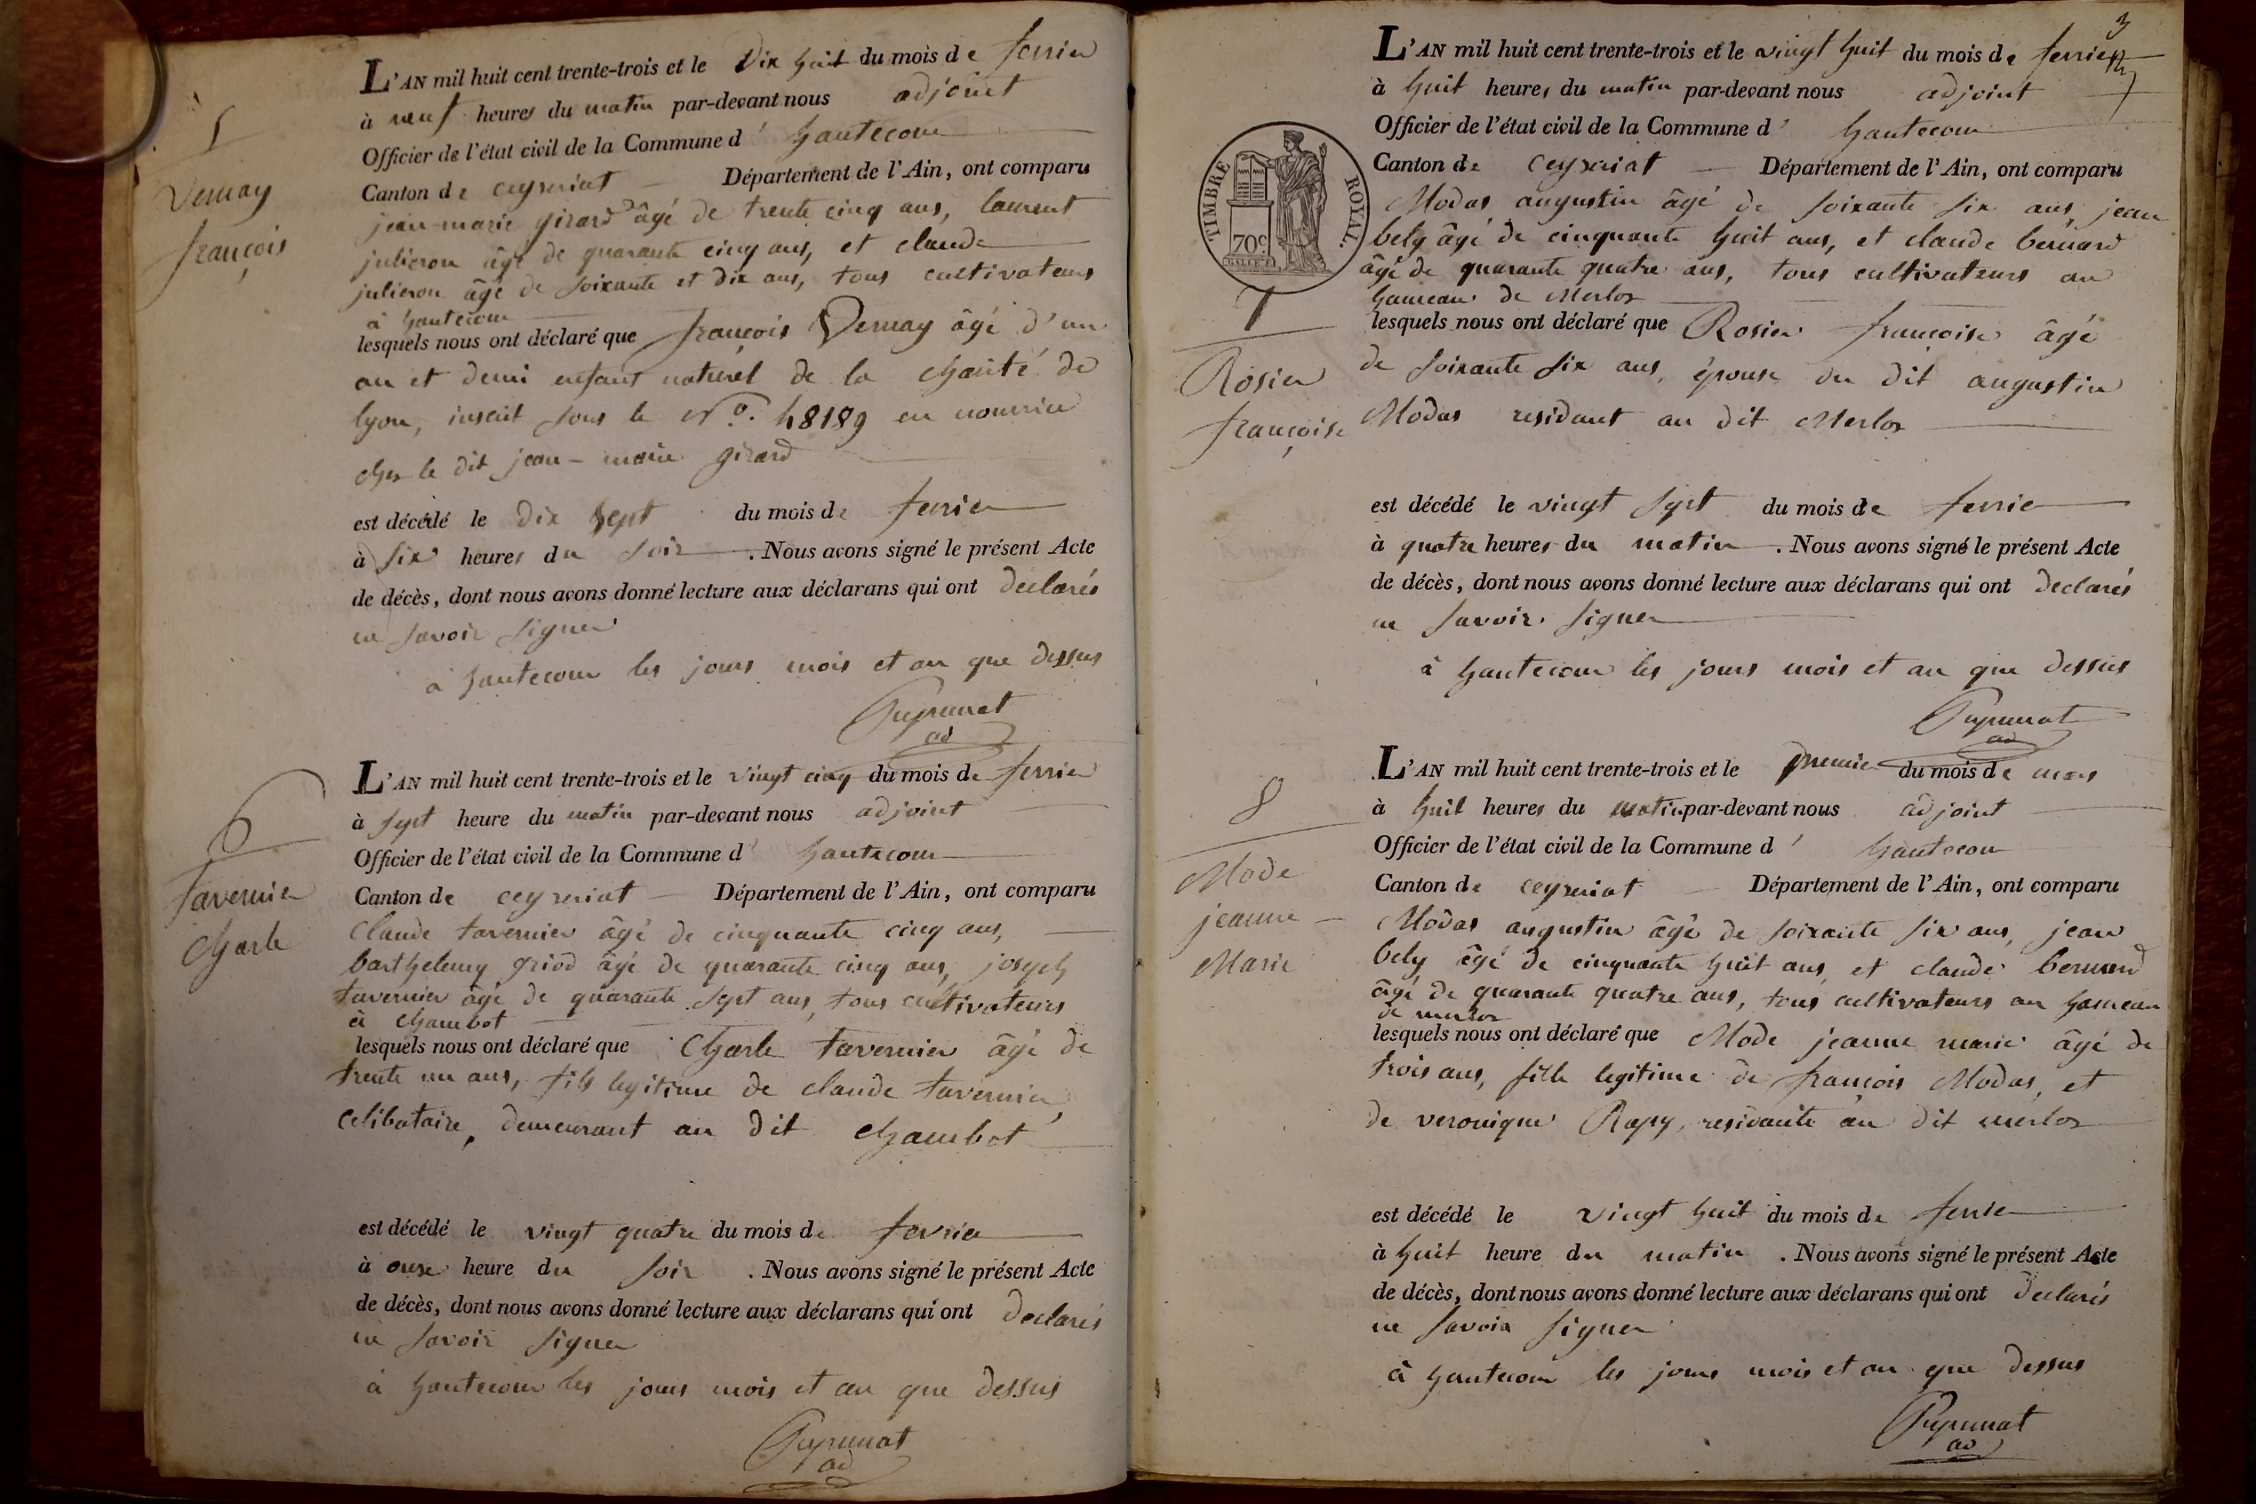 5
Vernay
françois
L'AN mil huit cent trente-trois et le dix huit du mois de fevrier
à neuf heures du matin par-devant nous adjoint
Officier de l'état civil de la Commune d' hautecour
Canton de ceyzeriat Département de l'Ain, ont comparu
jean-marie girard âgé de trente cinq ans, laurent
julieron âgé de quarante cinq ans, et claude
julieron âgé de soixante et dix ans, tous cultivateurs
à hautecour
lesquels nous ont déclaré que françois Vernay âgé d'un
an et demi enfant naturel de la charité de
lyon, inscrit sous le N°. 48189 en nourrice
chez le dit jean-marie girard
est décédé le dix sept du mois de fevrier
à six heures du soir. Nous avons signé le présent Acte
de décès, dont nous avons donné lecture aux déclarans qui ont declarés
ne savoir signer
à hautecour les jours mois et an que dessus
Pupunat
ad
6
tavernier
charle
L'AN mil huit cent trente-trois et le vingt cinq du mois de fevrier
à sept heure du matin par-devant nous adjoint
Officier de l'état civil de la Commune d' hautecour
Canton de ceyzeriat Département de l'Ain, ont comparu
Claude tavernier âgé de cinquante cinq ans,
barthelemy griod âgé de quarante cinq ans, joseph
tavernier âgé de quarante sept ans, tous cultivateurs
à chambot
lesquels nous ont déclaré que Charle tavernier âgé de
trente un ans, fils legitime de claude tavernier,
celibataire, demeurant au dit chambot
est décédé le vingt quatre du mois de fevrier
à onze heure du soir. Nous avons signé le présent Acte
de décès, dont nous avons donné lecture aux déclarans qui ont declarés
ne savoir signer
à hautecour les jours mois et an que dessus
Pupunat
ad
3
TIMBRE ROYAL.
70c
7
Rosier
françoise
L'AN mil huit cent trente-trois et le vingt huit du mois de fevrier
à huit heures du matin par-devant nous adjoint
Officier de l'état civil de la Commune d' hautecour
Canton de Ceyzeriat Département de l'Ain, ont comparu
Modas augustin âgé de soixante six ans, jean
bely âgé de cinquante huit ans, et claude bernard
âgé de quarante quatre ans, tous cultivateurs au
hameau de Merloz
lesquels nous ont déclaré que Rosier françoise âgé
de soixante six ans, épouse du dit augustin
Modas residant au dit Merloz
est décédé le vingt sept du mois de fevrie
à quatre heures du matin. Nous avons signé le présent Acte
de décès, dont nous avons donné lecture aux déclarans qui ont declarés
ne savoir signer
à hautecour les jours mois et an que dessus
Pupunat
ad
8
Mode
jeanne
Marie
L'AN mil huit cent trente-trois et le premier du mois de mars
à huit heures du matin par-devant nous adjoint
Officier de l'état civil de la Commune d' hautecour
Canton de ceyzeriat Département de l'Ain, ont comparu
Modas augustin âgé de soixante six ans, jean
bely âgé de cinquante huit ans, et claude bernard
âgé de quarante quatre ans, tous cultivateurs au hameau
de merloz
lesquels nous ont déclaré que Mode jeanne marie âgé de
trois ans, fille legitime de françois Modas, et
de veronique Rapy, residante au dit merloz
est décédé le vingt huit du mois de fevrie
à huit heure du matin. Nous avons signé le présent Acte
de décès, dont nous avons donné lecture aux déclarans qui ont declarés
ne savoir signer
à hautecour les jours mois et an que dessus
Pupunat
ad